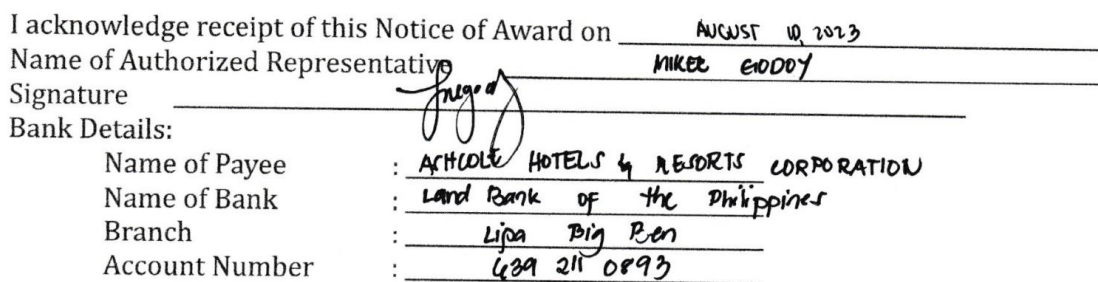 I acknowledge receipt of this Notice of Award on AUGUST 10, 2023
Name of Authorized Representative MIKEE GODOY
Signature
Bank Details:
Name of Payee : ACHCOLE HOTELS & RESORTS CORPORATION
Name of Bank : Land Bank of the Philippines
Branch : Lipa Big Ben
Account Number : 439 211 0893